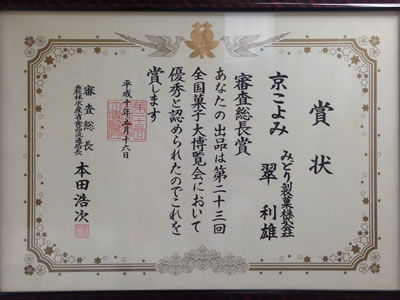 賞状
京こよみ
みどり製菓株式会社
翠利雄
審査総長賞
あなたの出品は第二十三回
全国菓子大博覧会において
優秀と認められたのでこれを
賞します
平成十年五月十六日
審査総長
農林水産省食品流通局長
本田浩次